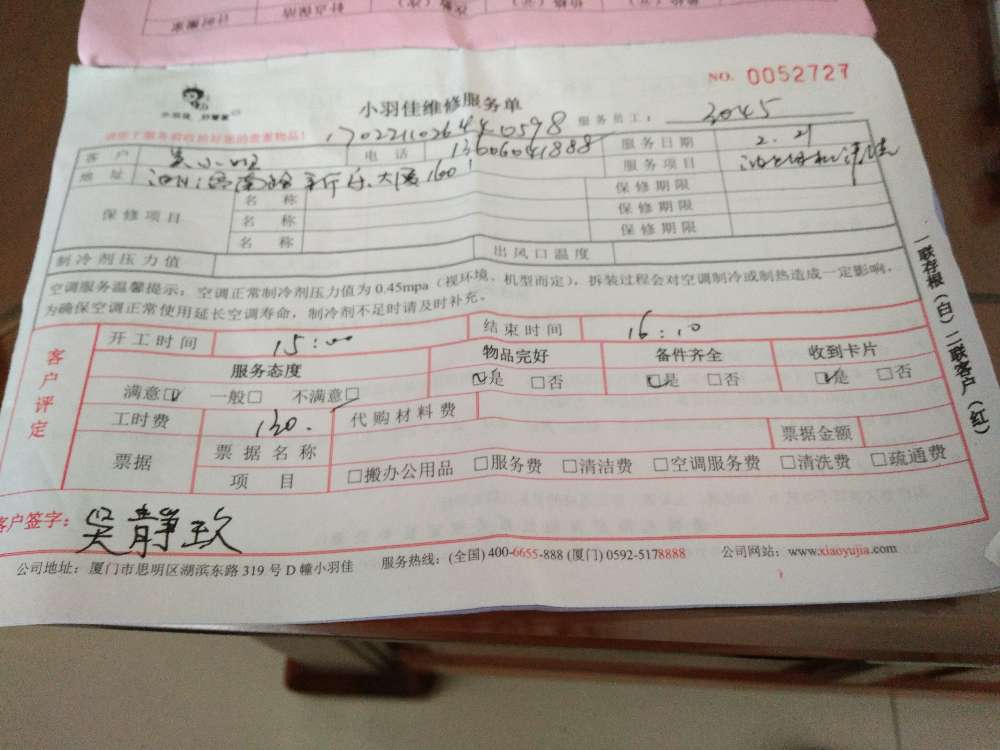 NO. 0052727
小羽佳维修服务单
服务员工: 3045
客户 吴小姐 电话 13606041888 服务日期 2.21
地址 服务项目
保修项目 名称 保修期限
名称 保修期限
名称 保修期限
制冷剂压力值 出风口温度
空调服务温馨提示: 空调正常制冷剂压力值为 0.45mpa (视环境、机型而定), 拆装过程会对空调制冷或制热造成一定影响,
为确保空调正常使用延长空调寿命, 制冷剂不足时请及时补充。
客户评定
开工时间 15:00 结束时间 16:10
服务态度 物品完好 备件齐全 收到卡片
满意☑ 一般□ 不满意□ ☑是 □否 ☑是 □否 ☑是 □否
工时费 130. 代购材料费
票据 票据名称 票据金额
项目 □搬办公用品 □服务费 □清洁费 □空调服务费 □清洗费 □疏通费
客户签字: 吴静玫
公司地址: 厦门市思明区湖滨东路 319 号 D 幢小羽佳 服务热线: (全国) 400-6655-888 (厦门) 0592-5178888 公司网站: www.xiaoyujia.com
一联存根(白) 二联客户(红)